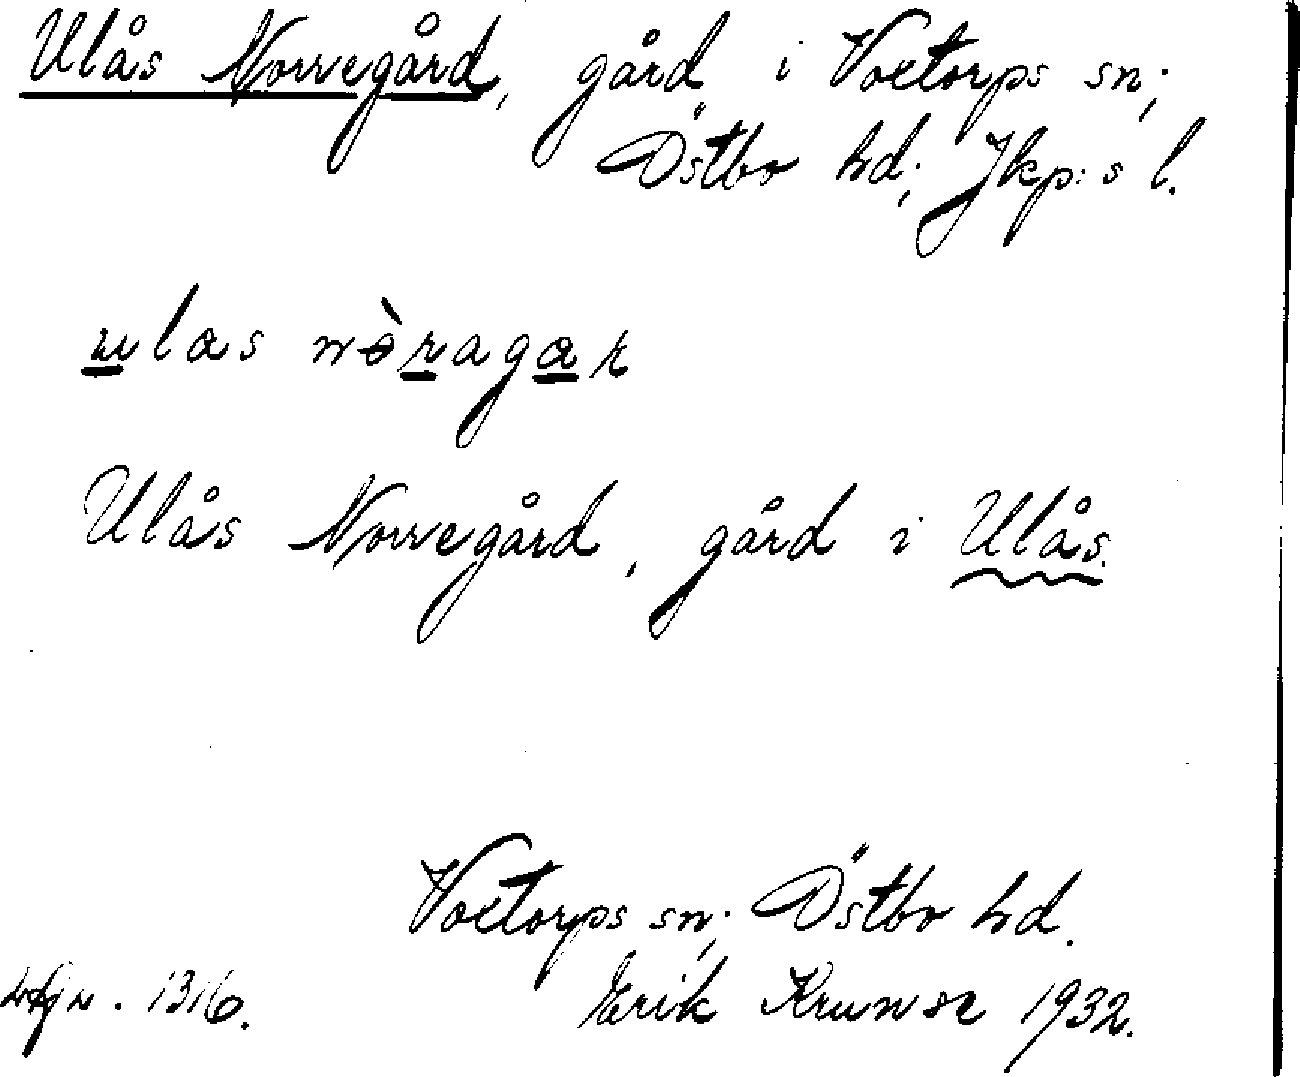 Ulås Norregård, gård i Voxtorps sn;
Östbo hd; Jkp:s l.
ulas nòragar
Ulås Norregård, gård i Ulås.
Voxtorps sn; Östbo hd.
1316. Erik 1932.